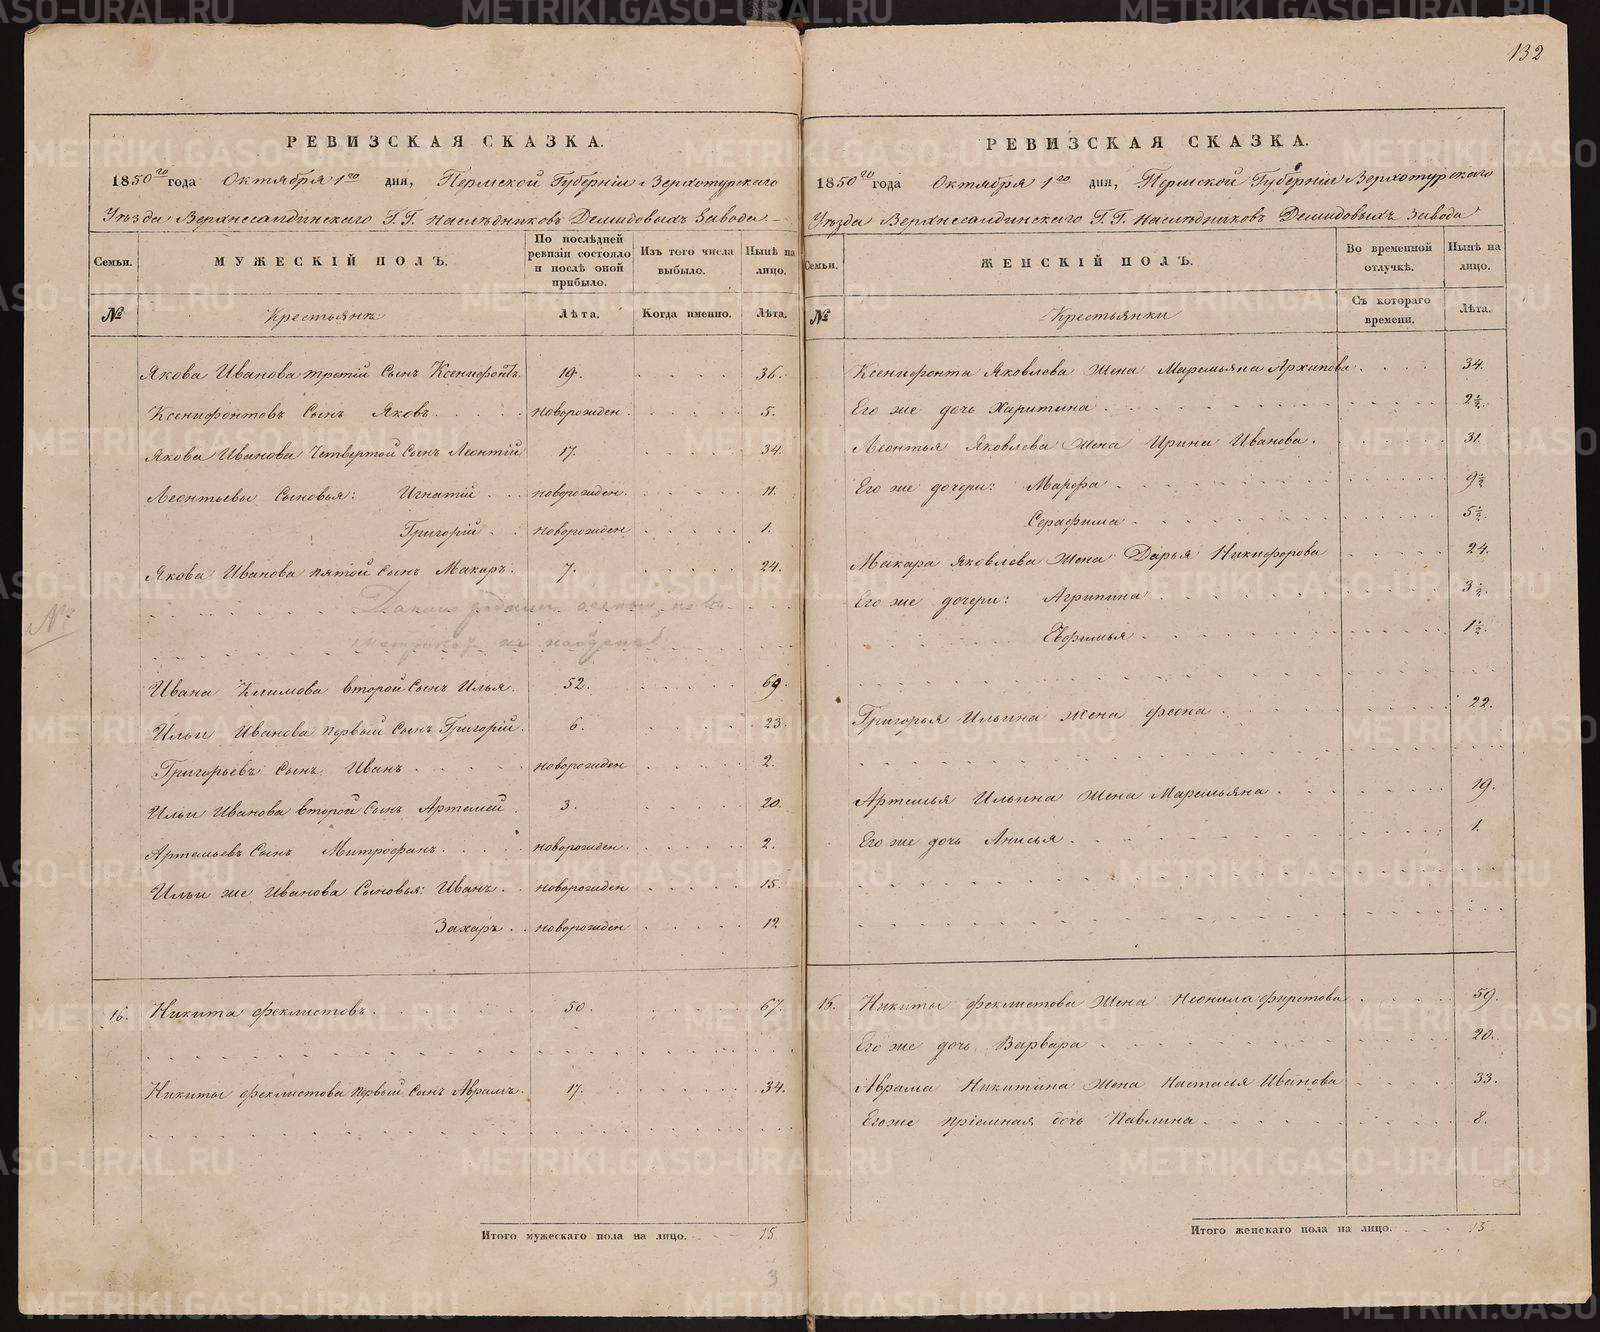 132
РЕВИЗСКАЯ СКАЗКА.
1850го года Октября 1го дня, Пермской Губерніи Верхотурскаго
Уѣзда Верхнесалдинскаго Г.Г. Наслѣдниковъ Демидовыхъ Завода
Семьи.
МУЖЕСКІЙ ПОЛЪ.
По послѣдней ревизіи состояло и послѣ оной прибыло.
Изъ того числа выбыло.
Нынѣ на лицо.
№
Крестьянъ
Лѣта.
Когда именно.
Лѣта.
Якова Иванова третій Сынъ Ксенифонтъ. 19. 36.
Ксенифонтовъ Сынъ Яковъ. новорожден. 5.
Якова Иванова Четвертой Сынъ Леонтій 17. 34.
Леонтьевы Сыновья: Игнатій новорожден. 11.
Григорій новорожден 1.
Якова Иванова пятой Сынъ Макаръ. 7. 24.
№
не
Ивана Климова второй Сынъ Илья. 52. 69.
Ильи Иванова первый Сынъ Григорій. 6. 23.
Григорьевъ Сынъ Иванъ новорожден 2.
Ильи Иванова второй Сынъ Артемей 3. 20.
Артемьевъ Сынъ Митрофанъ новорожден. 2.
Ильи же Иванова Сыновья: Иванъ новорожден 15.
Захаръ новорожден 12
16. Никита Феклистовъ 50. 67.
Никиты Феклистова первый Сынъ Аврамъ. 17. 34.
Итого мужескаго пола на лицо. 15
3
РЕВИЗСКАЯ СКАЗКА.
1850го года Октября 1го дня, Пермской Губерніи Верхотурскаго
Уѣзда Верхнесалдинскаго Г.Г. Наслѣдниковъ Демидовыхъ Завода
Семьи.
ЖЕНСКІЙ ПОЛЪ.
Во временной отлучкѣ.
Нынѣ на лицо.
№
Крестьянки
Съ котораго времени.
Лѣта.
Ксенифонта Яковлева Жена Маремьяна Архипова 34.
Его же дочь Харитина 2½.
Леонтья Яковлева Жена Ирина Иванова. 31.
Его же дочери: Марфа 9½
Серафима 5½.
Макара Яковлева Жена Дарья Никифорова 24.
Его же дочери: Агрипина 3½.
Ефимья 1½.
Григорья Ильина Жена Феона 22.
Артемья Ильина Жена Маремьяна. 19.
Его же дочь Анисья 1.
16. Никиты Феклистова Жена Неонила Фирстова 59.
Его же дочь Варвара 20.
Аврама Никитина Жена Настасья Иванова 33.
Его же пріемная дочь Павлина 8.
Итого женскаго пола на лицо. 15
METRIKI.GASO-URAL.RU